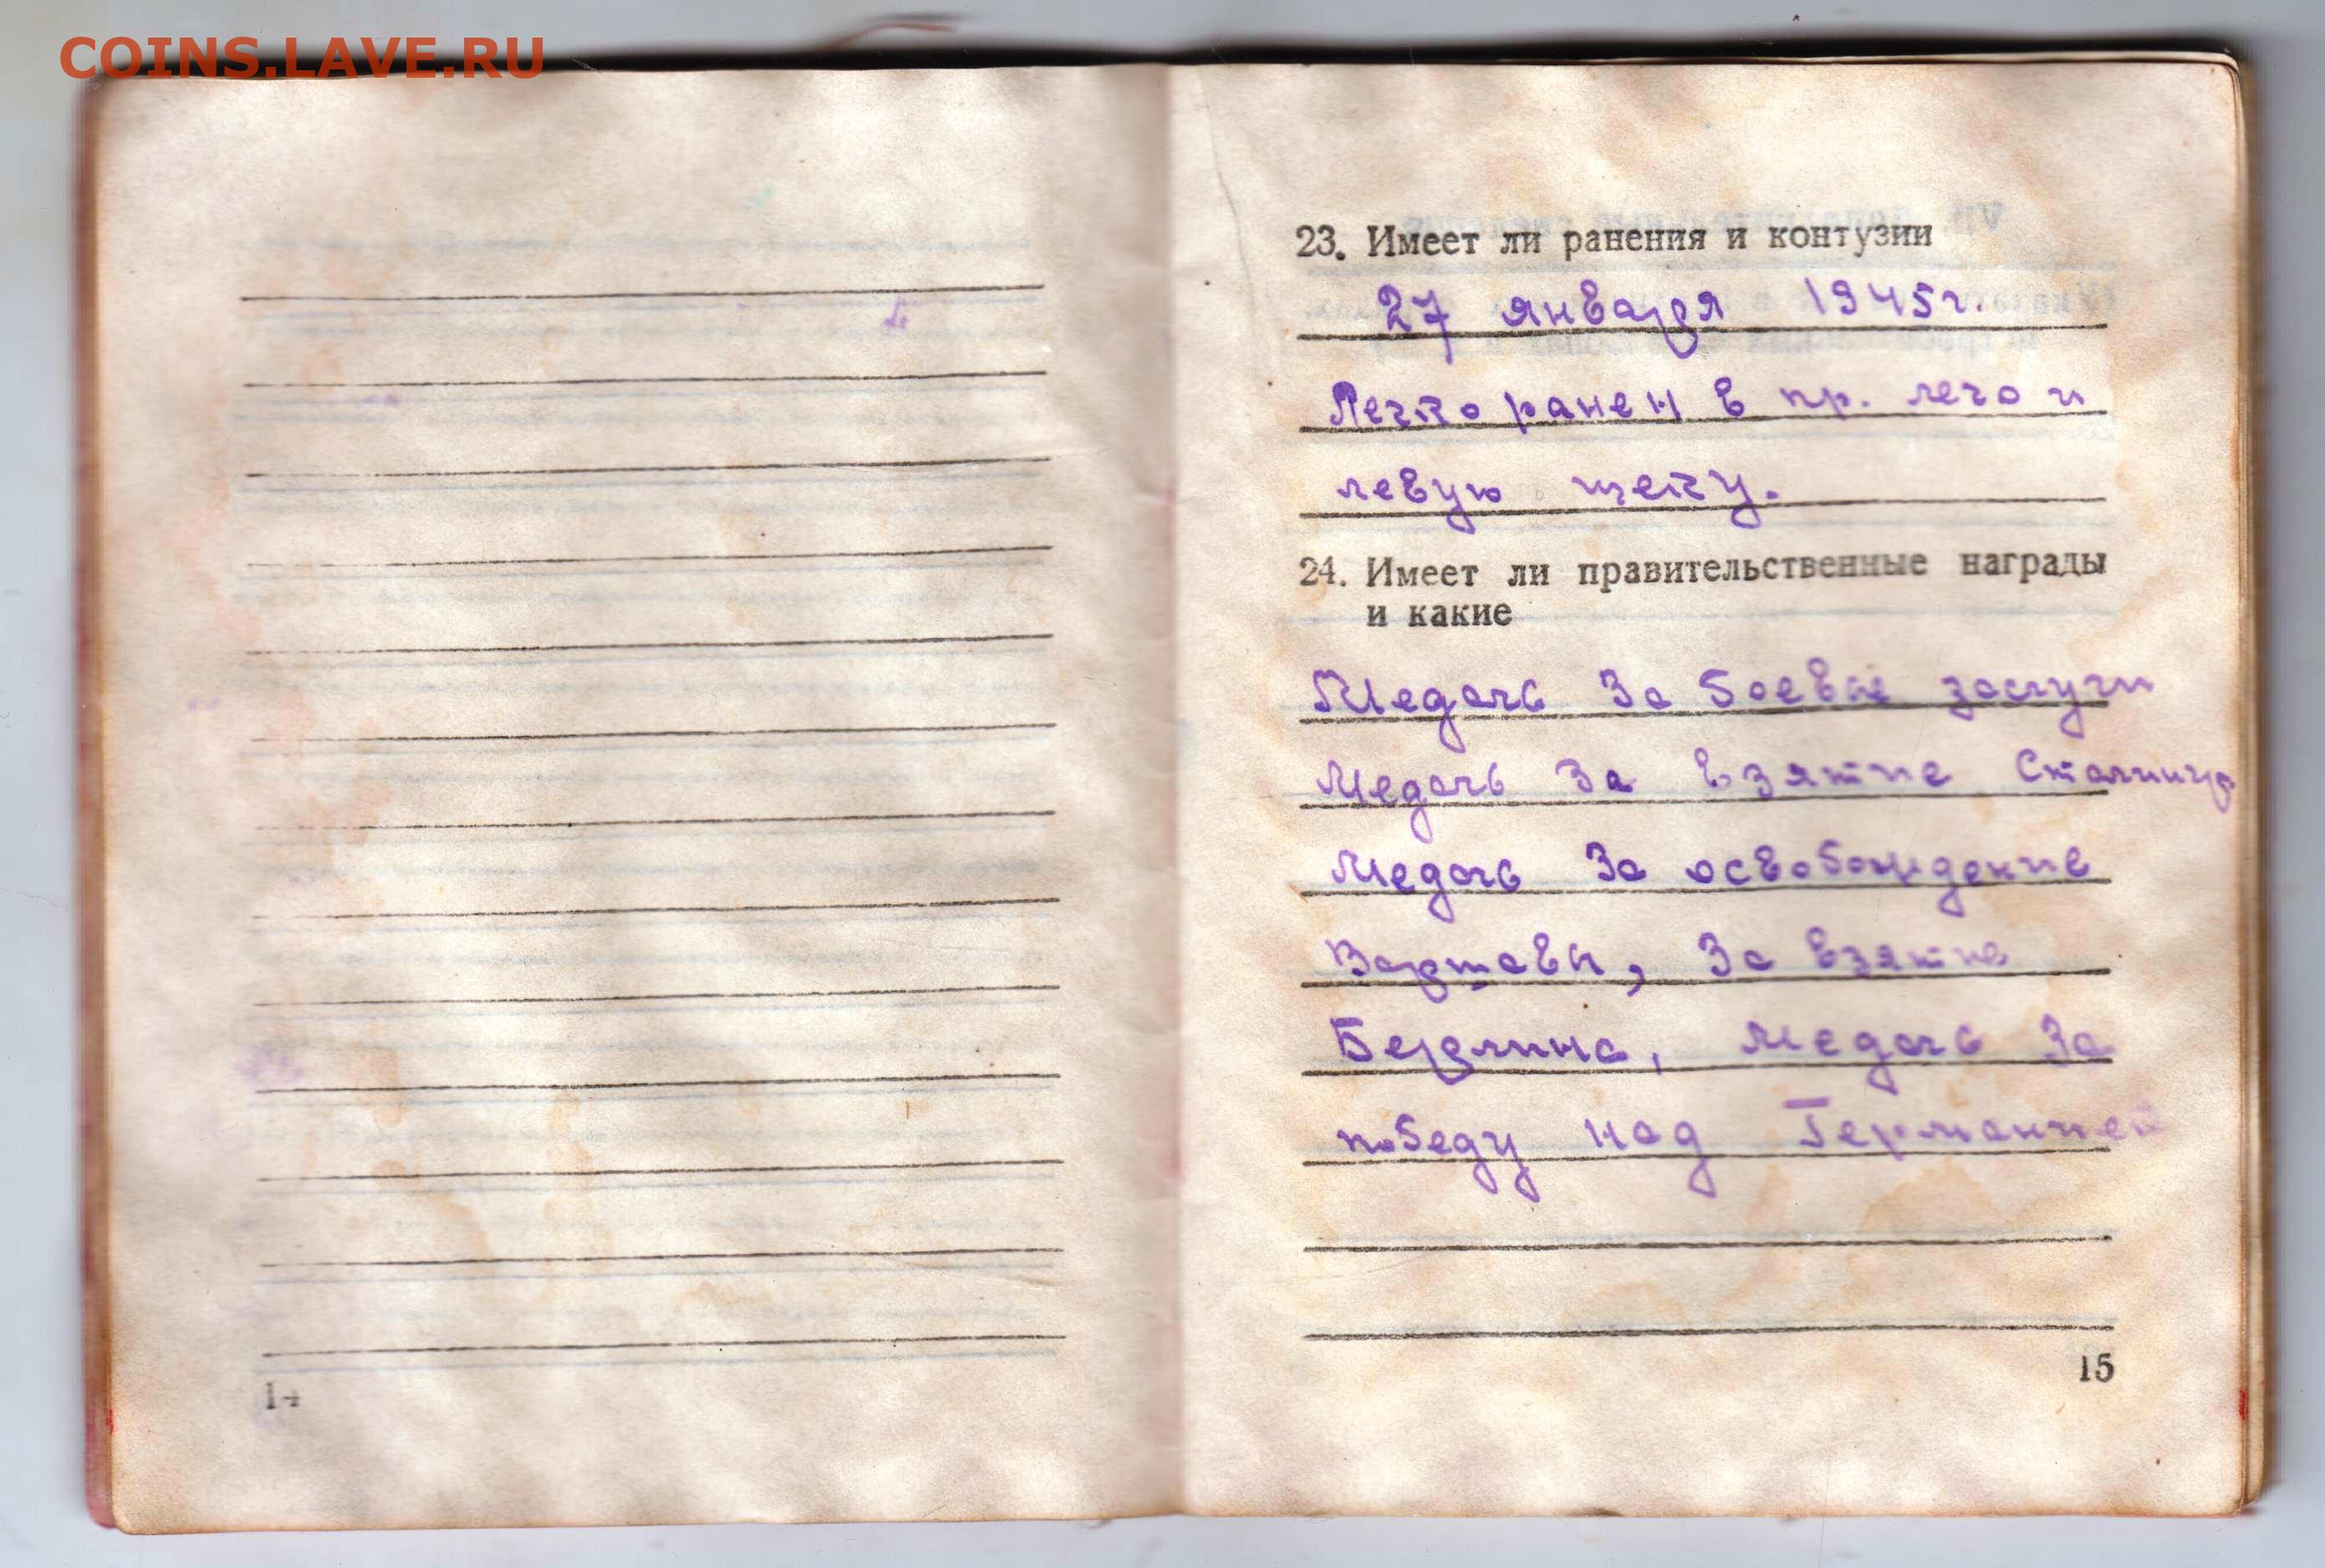 COINS.LAVE.RU
14
23. Имеет ли ранения и контузии
27 января 1945г.
Легко ранен в пр. лего и
левую щеку.
24. Имеет ли правительственные награды
и какие
Медаль За боевые заслуги
Медаль За взятие Сталингр
Медаль За освобождение
Варшавы, За взятие
Берлина, медаль За
победу над Германией
15